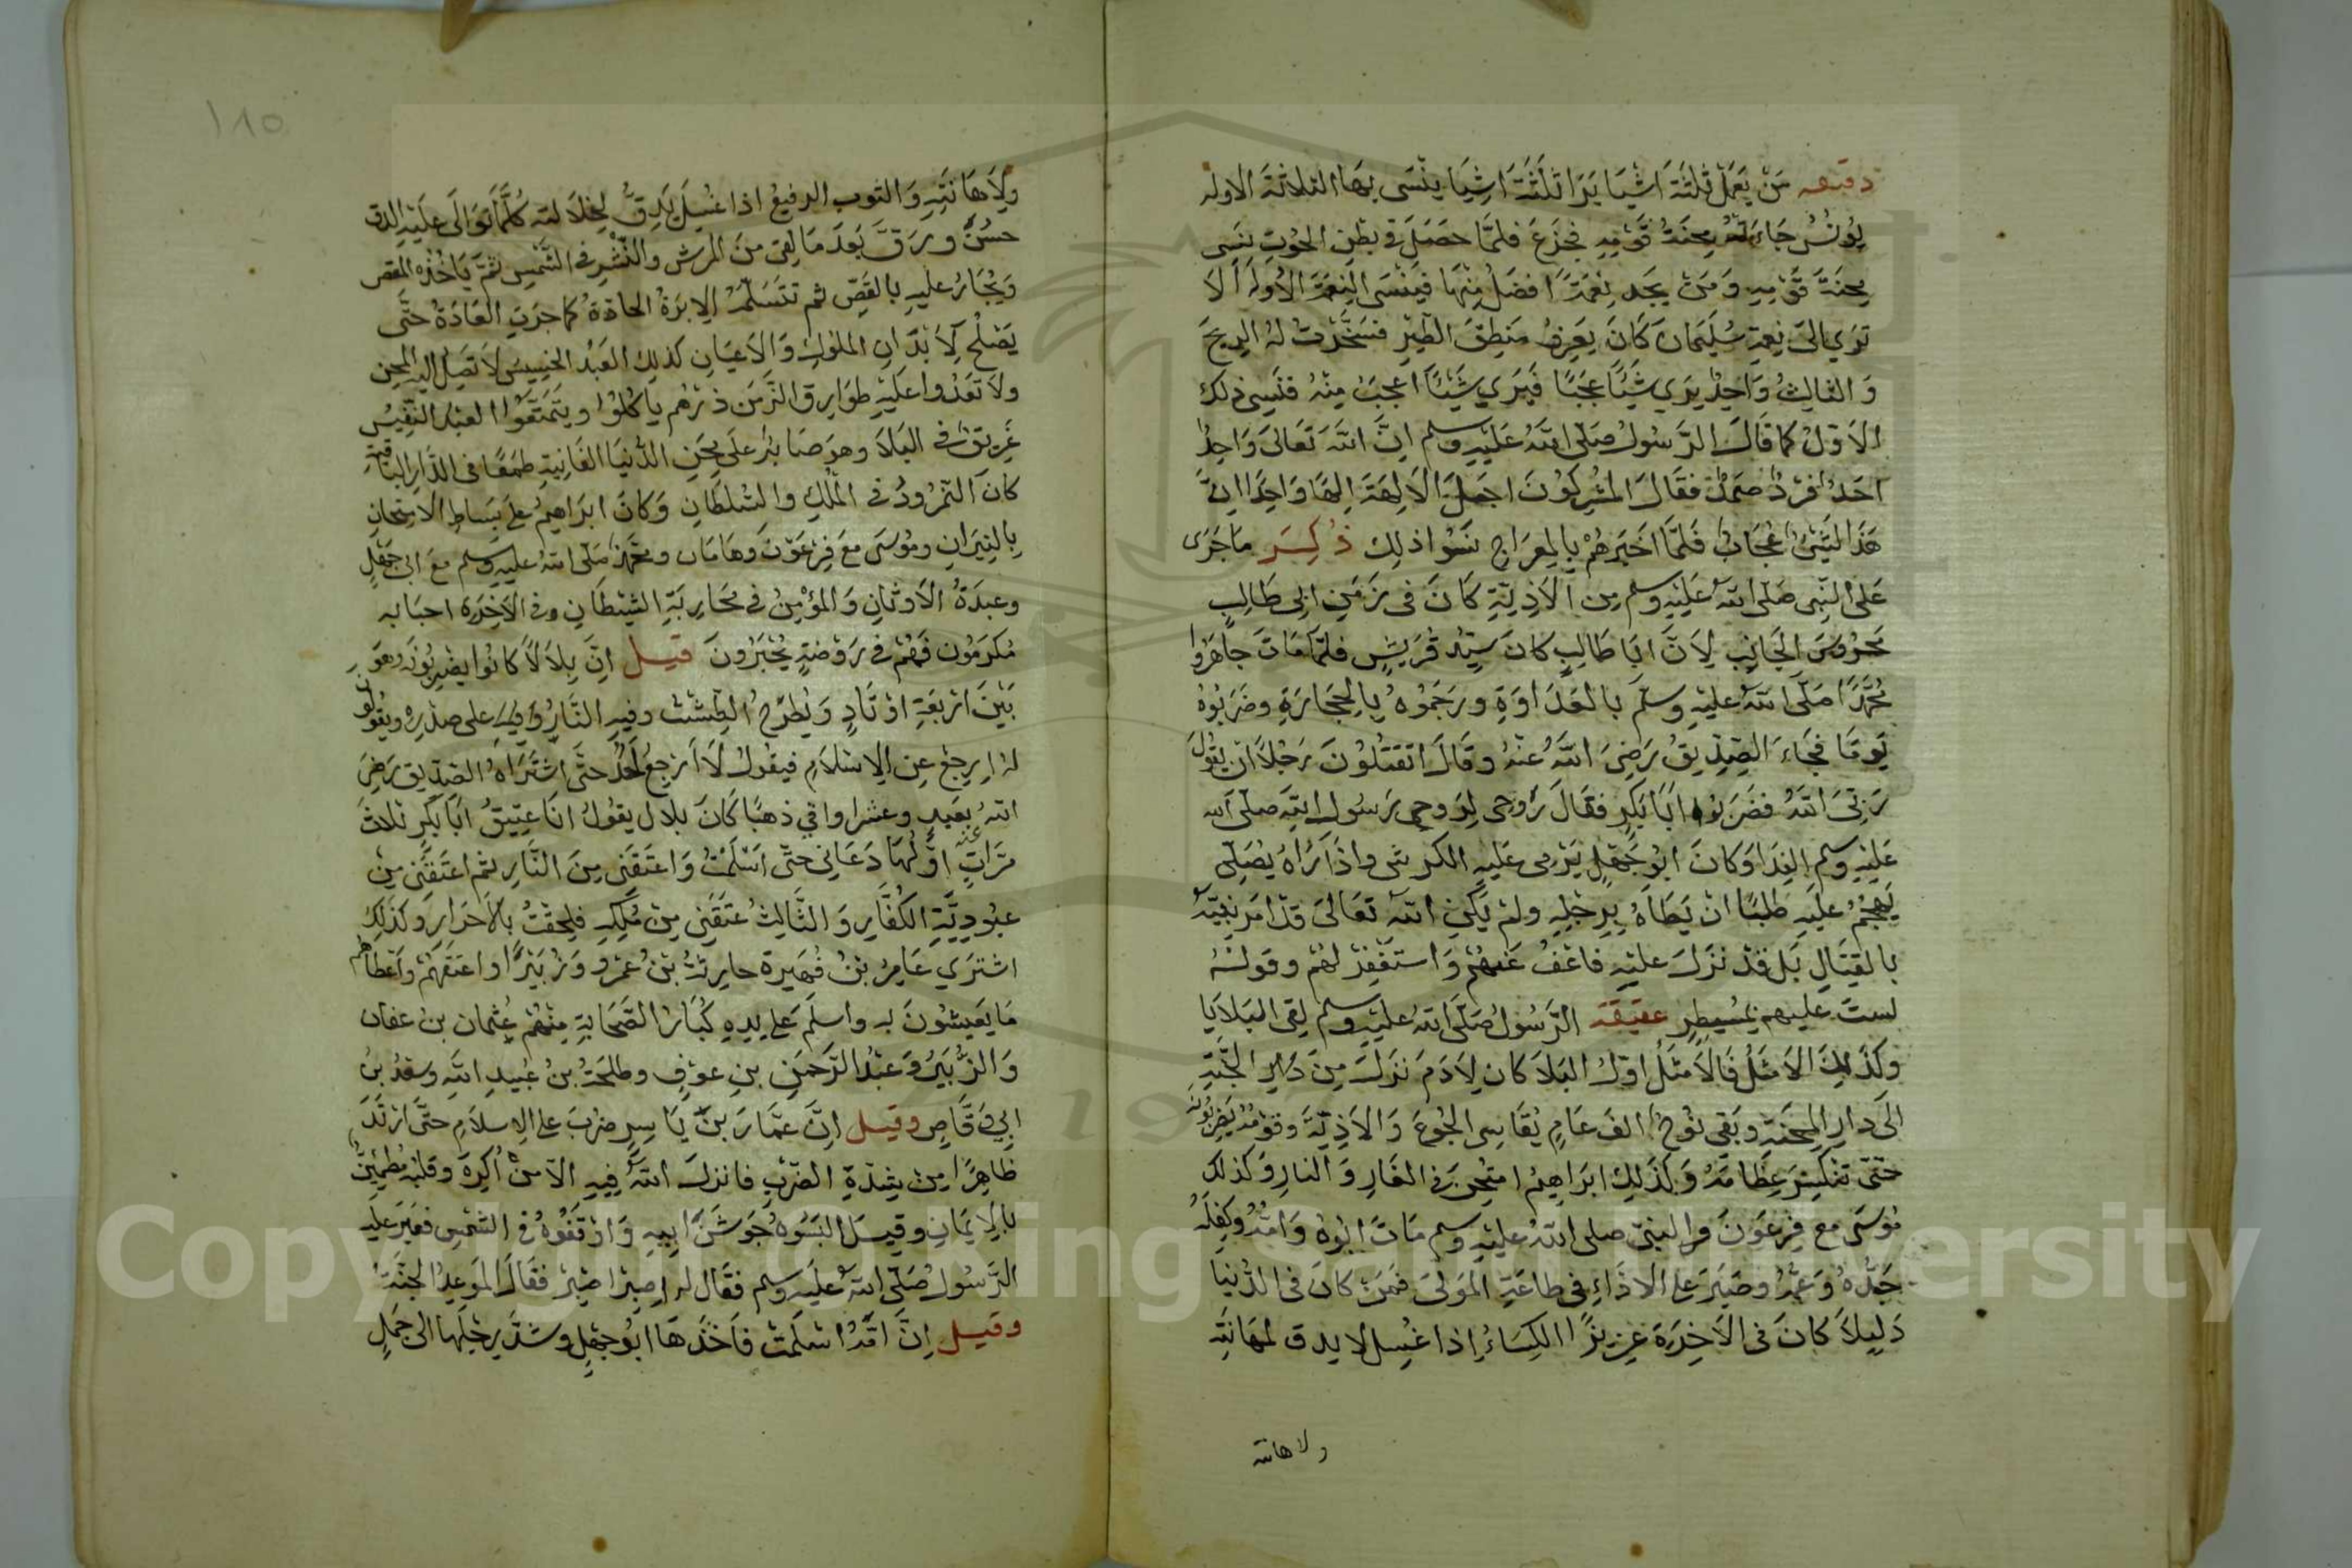 دقيقه مَنْ يَعْمَلْ ثلثَةَ اشْيَا يَرَا ثلَثَةَ اشِيَا ينْسَى بهَا الثلاثَةَ الاوله
يُونُسُ جَاءَتْهُ مِحنَةُ قَوْمِهِ فجَزَعَ فلمَّا حصَلَ فِي بطنِ الحُوتِ نَسِى
مِحنَةَ قَوْمِهِ وَمَنْ يجَد نِعْمَةً افضَلُ مِنْهَا فَيَنْسَى النِعْمَةَ الأولَه أَلَا
تَرَي الى نِعمَةِ سُلَيمَانَ كَانَ يَعْرِفُ مَنطِقَ الطَيْرِ فسَخَّرَتْ لهُ الرِيحَ
وَالثالِثُ وَاحِدٌ يَرَي شَيْئًا عَجَبًا فَيَرَي شَيْئًا اعجَبَ مِنْهُ فنَسِى ذلك
الاَوَّلُ كما قَالَ الرَّسُولُ صَلّى اللهُ عَلَيْهِ وسلم انَّ اللهَ تَعَالىَ وَاحِدٌ
احَدٌ فَرْدٌ صَمَدٌ فقَالَ المُشْرِكُونَ اجَعَلَ الآلِهَةَ اِلهًا وَاحِدًا اِنَّ
هَذَا لشَىْءٌ عُجَابٌ فَلمَّا اخْبَرَهُمْ بِالمِعْرَاجِ نَسَوُا ذلِك ذُكِرَ مَا جَرَى
عَلىَ النَّبِى صَلّى اللهُ عَلَيْهِ وسلم مِن الاَذِيَّةِ كَانَ فى زَمَنِ ابِى طَالِبٍ
مَحْرُوسَ الجَانِبِ لِاَنَّ ابَا طَالِبٍ كانَ سَيِّدَ قُرَيْشٍ فلمَّا مَاتَ جاهَرُوا
مُحَمَّدًا صَلّى اللهُ عَليْهِ وسلّم بالعَدَاوَةِ ورَجَمُوهُ بِالحِجَارَةِ وضَرَبُوهُ
يَومًا فجَاءَ الصِدِيقُ رَضِىَ اللهُ عَنْهُ وقَالَ اتقتُلُونَ رَجُلاً ان يقُولَ
رَبّىَ اللهُ فضَرَبُوا ابَا بَكرٍ فقَالَ رُوحى لِرُوحى رَسُولِ اللهِ صلى الله
عَليْهِ وسلم الفِدَا وَكانَ ابُو جَهْلٍ يَرْمى عَليْهِ الكرشى واذا رَاهُ يُصَلّى
يَهجُمُ عليْهِ طلبًا ان يَطَاهُ برِجْلِهِ ولمْ يَكُنِ اللهُ تعَالىَ قدْ امَرَ نبِيَّهُ
بالقِتَالِ بَل قَدْ نزَلَ عليْهِ فاعْفُ عَنهُمْ وَاستَغْفِرْ لهُمْ وقولُهُ
لستَ عليهم بمُسَيْطِرٍ عقيقة الرَّسُولُ صَلّى اللهُ عليْهِ وسلم لقى البَلايَا
وكَذَلِكَ الاَمْثَلُ فَالاَمثَلُ اوّلُ البَلاَ كان لِآدَمَ نَزَلَ مِنَ دَارِ الجَنَّةِ
الَى دَارِ المِحْنَةِ وبَقِى نُوحٌ الفَ عَامٍ يُقَاسِى الجُوعَ وَالاَذِيَّةَ وقَوْمُهُ يَضْرِبُونَهُ
حَتّى تنكَسِرَ عِظَامَهُ وَكَذَلِكَ ابرَاهِيمُ امتُحِنَ فى الغَارِ وَالنارِ وَكذلك
مُوسَى مع فِرْعَوْنَ والنبىّ صلى اللهُ عليْهِ وسلم مَاتَ ابُوهُ وَامُّهُ وكفِلَهُ
جَدُّهُ وَعَمُّهُ وصَبَرَ على الاذَاءِ فى طاعَةِ المَوْلىَ فمَنْ كانَ فى الدُّنيا
ذَلِيلاً كانَ فى الآخِرَةِ عَزِيزًا الكِسَاءُ اِذا غُسِل لا يدق لمهَانَتِه
ولاهانته
١٨٥
ولِاَهَانَتِهِ وَالثوبِ الرفيعُ اذا غُسِلَ يَدِقُّ لِجَلَالته كُلَّمَا تَوَالَى عَلَيْهِ الدق
حسُنَ ورَقَّ بَعدَ مَا لقى مِنَ المرش والنَّشْرِ فى الشَّمْسِ ثمَّ يَاخُذُهُ المقص
وَيُجَارُ عليْهِ بالقَصِّ ثم تتَسَلَّمُهُ الاِبرَةُ الحَادَّةُ كما جرَتِ العَادَةُ حتَّى
يَصْلُحَ لِاَبْدَانِ الملُوكِ وَالاَعيَانِ كذلِك العَبْدُ الخَسِيسُ لاَ تَصِلُ اليهِ المِحن
ولاَ تعَدُوا عَليْهِ طوَارِق الزَّمَن ذَرْهُم يَاكُلُوا ويتَمَتَّعُوا العَبْدُ النَّفِيسُ
غرِيقٌ فى البَلاَ وهوَ صَابِرٌ على مِحَنِ الدُّنيَا الفَانِيَةِ طمَعًا فى الدَّارِ البَاقيةِ
كانَ النّمْرُودُ فى المُلْكِ والسُلطَانِ وَكانَ ابرَاهِيمُ على بِسَاطِ الامتِحَانِ
بِالنِيرَانِ ومُوسَى مَعَ فِرْعَوْنَ وهَامَان ومحَمدٌ صَلى اللهُ عليْهِ وسلم مَعَ ابى جَهْلٍ
وعبدَةُ الاَوثَانِ وَالمُؤْمِنُ فى محَارَبَةِ الشيْطَانِ وفى الآخِرَةِ احبَابه
مُكرَمُون فَهُمْ فى رَوْضَةٍ يُحْبَرُونَ قيل اِنَّ بِلاَلاً كانُوا يضرِبُونَه وهوَ
بَيْنَ ارْبَعَةِ اوْتَادٍ وَيُطرَحُ الطِشتُ وفيهِ النَّارُ على صَدْرِهِ ويقُولُون
لهُ ارجِعْ عنِ الاِسْلاَمِ فيقُولُ لاَ ارْجعُ احدٌ حتَّى اشتَرَاهُ الصِدّيق رَضِىَ
اللهُ عنه بعَبدٍ وعشر اواقى ذهبًا كَانَ بلال يقُولُ انَا عتِيقُ ابَا بَكرٍ ثلاثَ
مَرَّاتٍ اوَّلُهَا دَعَانى حتَّى اسْلَمْتُ وَاعتَقَنى مِنَ النَّارِ ثم اعتَقَنى مِن
عبُودِيَّةِ الكُفَّارِ وَالثَّالِثُ عتَقَنى مِنْ مُلكِهِ فلحِقْتُ بالاَحرَارِ وَكذَلِك
اشترَي عَامِرُ بْنُ فُهَيرةَ حارِثُ بْنُ عَمْرٍو وَزُبَيْرًا واعتَقَهُمْ واعطَاهُم
مَا يَعِيشُونَ به واسلَمَ على يدِهِ كُبَارُ الصَّحَابَةِ مِنْهُمْ عُثمان بن عفان
وَالزُّبَيْرُ وَعَبْدُ الرَّحمَنِ بنِ عوْفٍ وطلحَةُ بنُ عُبيدِ اللهِ وسَعْدُ بنُ
ابِى وَقَّاصٍ وقيل اِنَّ عمَّارَ بنَ يَاسِرٍ ضرِبَ على الاِسلامِ حتَّى ارْتَدَّ
ظَاهِرًا مِن شِدّةِ الضَرْبِ فانزلَ اللهُ فِيهِ الاَّ مَنْ اُكرِهَ وقَلبُهُ مُطمَئِنٌّ
بالاِيمَانِ وقيلَ البَسُوهُ جَوشَنَ ابِيهِ وَاوْقَفُوهُ فى الشمْسِ فعَبَرَ عليْهِ
الرَّسُولُ صَلّى اللهُ عليْهِ وسلم فقَال له اِصبِرْ اصْبِرْ فقَالَ المَوعِدُ الجنَّة
وقيل اِنَّ امَّهُ اسْلَمَتْ فاَخَذَهَا ابُو جهْلٍ وشدَّ رِجْلَها الى جَمَلٍ
Copyright © King Saud University